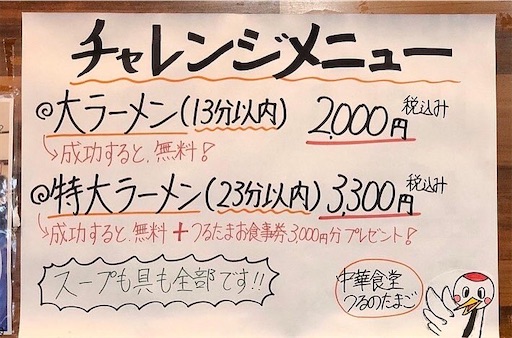 チャレンジメニュー
◎大ラーメン(13分以内) 2,000円 税込み
↳成功すると、無料!
◎特大ラーメン(23分以内) 3,300円 税込み
↳成功すると、無料+つるたまお食事券3,000円分プレゼント!
スープも具も全部です!!
中華食堂
つるのたまご